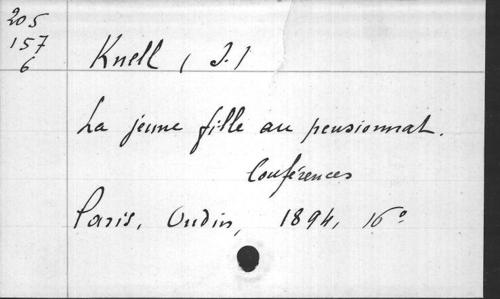 205
157
6
Knell (J.)
La jeune fille au pensionnat.
Conférences
Paris, Oudin, 1894, 16°